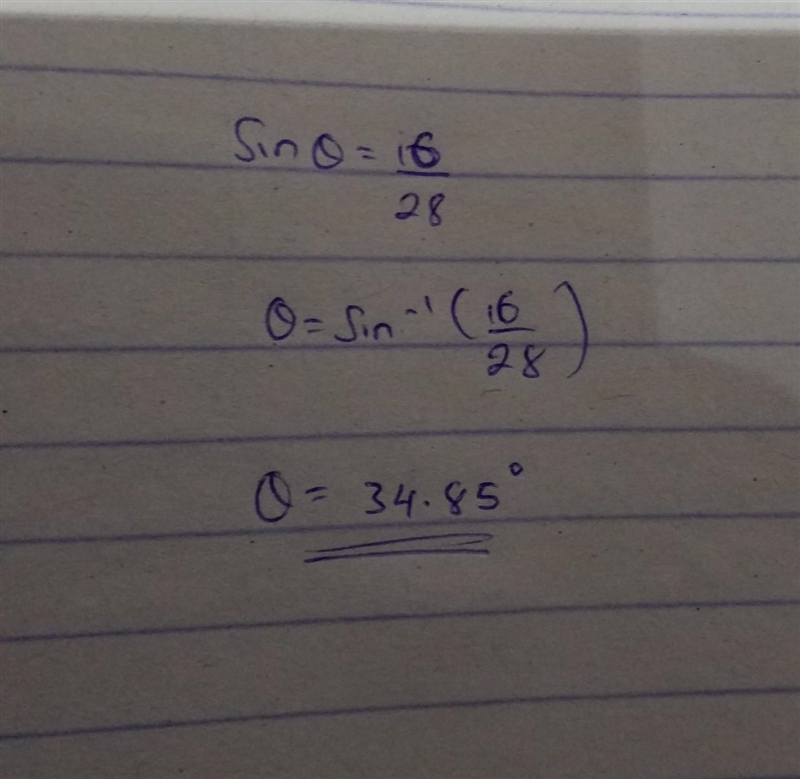 Sin θ = 16/28
θ = Sin⁻¹ (16/28)
θ = 34.85°